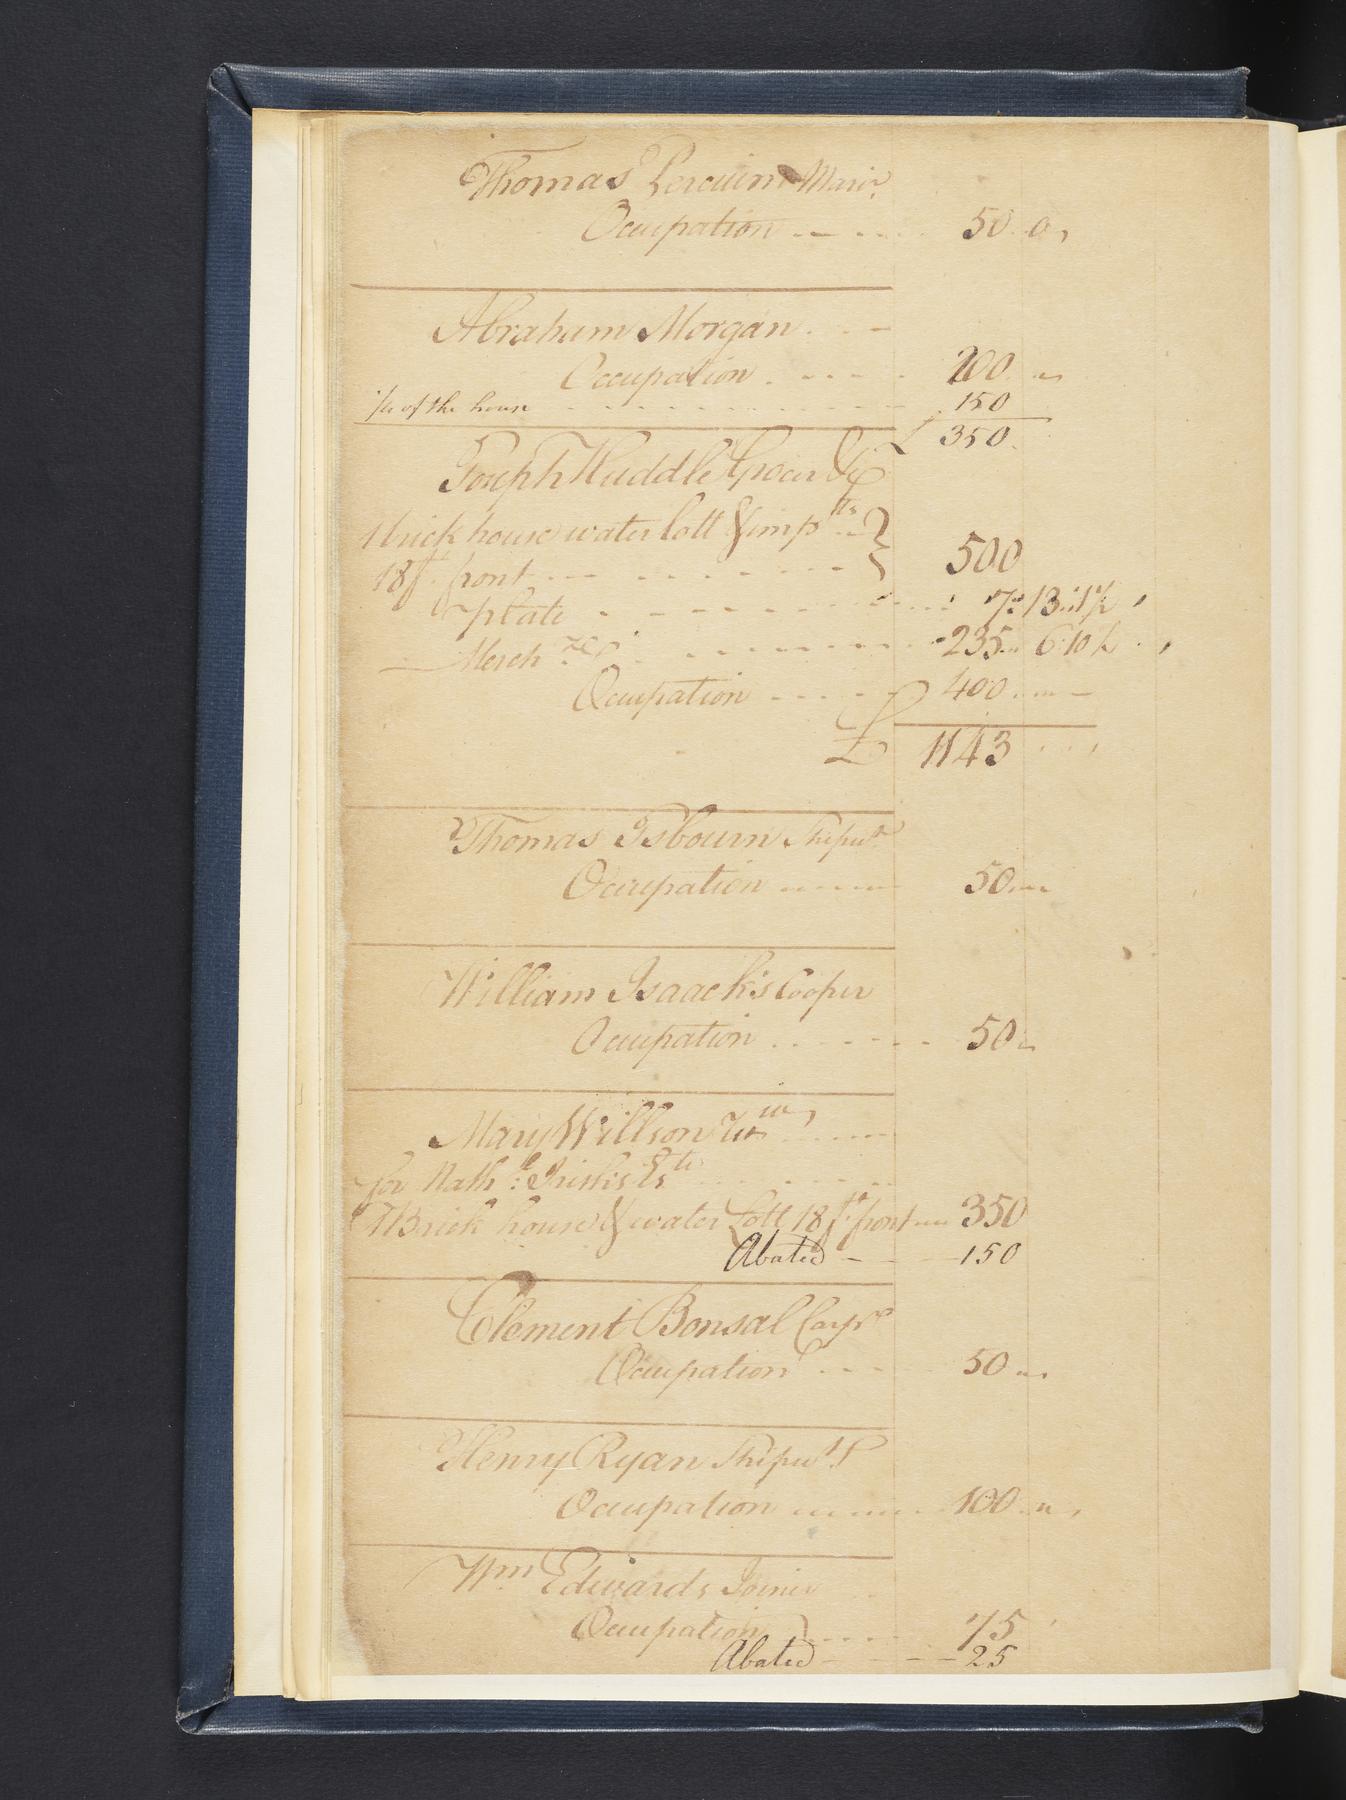 Thomas Marir.
Occupation 50 0
Abraham Morgan
Occupation 200
of the house 150
£ 350
Joseph Huddle Grocer &c
1 brick house water lott & imp ts
18 ft front 500
plate 7: 13: 1½
Merch ze 235 6:10½
Occupation 400
£ 1143
Thomas Isbourn Shipwt
Occupation 50
William Isaacks Cooper
Occupation 50
Mary Willson
for Nath l: Irishs Es te
1 Brick house & water Lott 18 ft front 350
Abated 150
Clement Bonsal Carpr
Occupation 50
Henry Ryan Shipwt
Occupation 100
Wm Edwards Joiner
Occupation 75
Abated 25